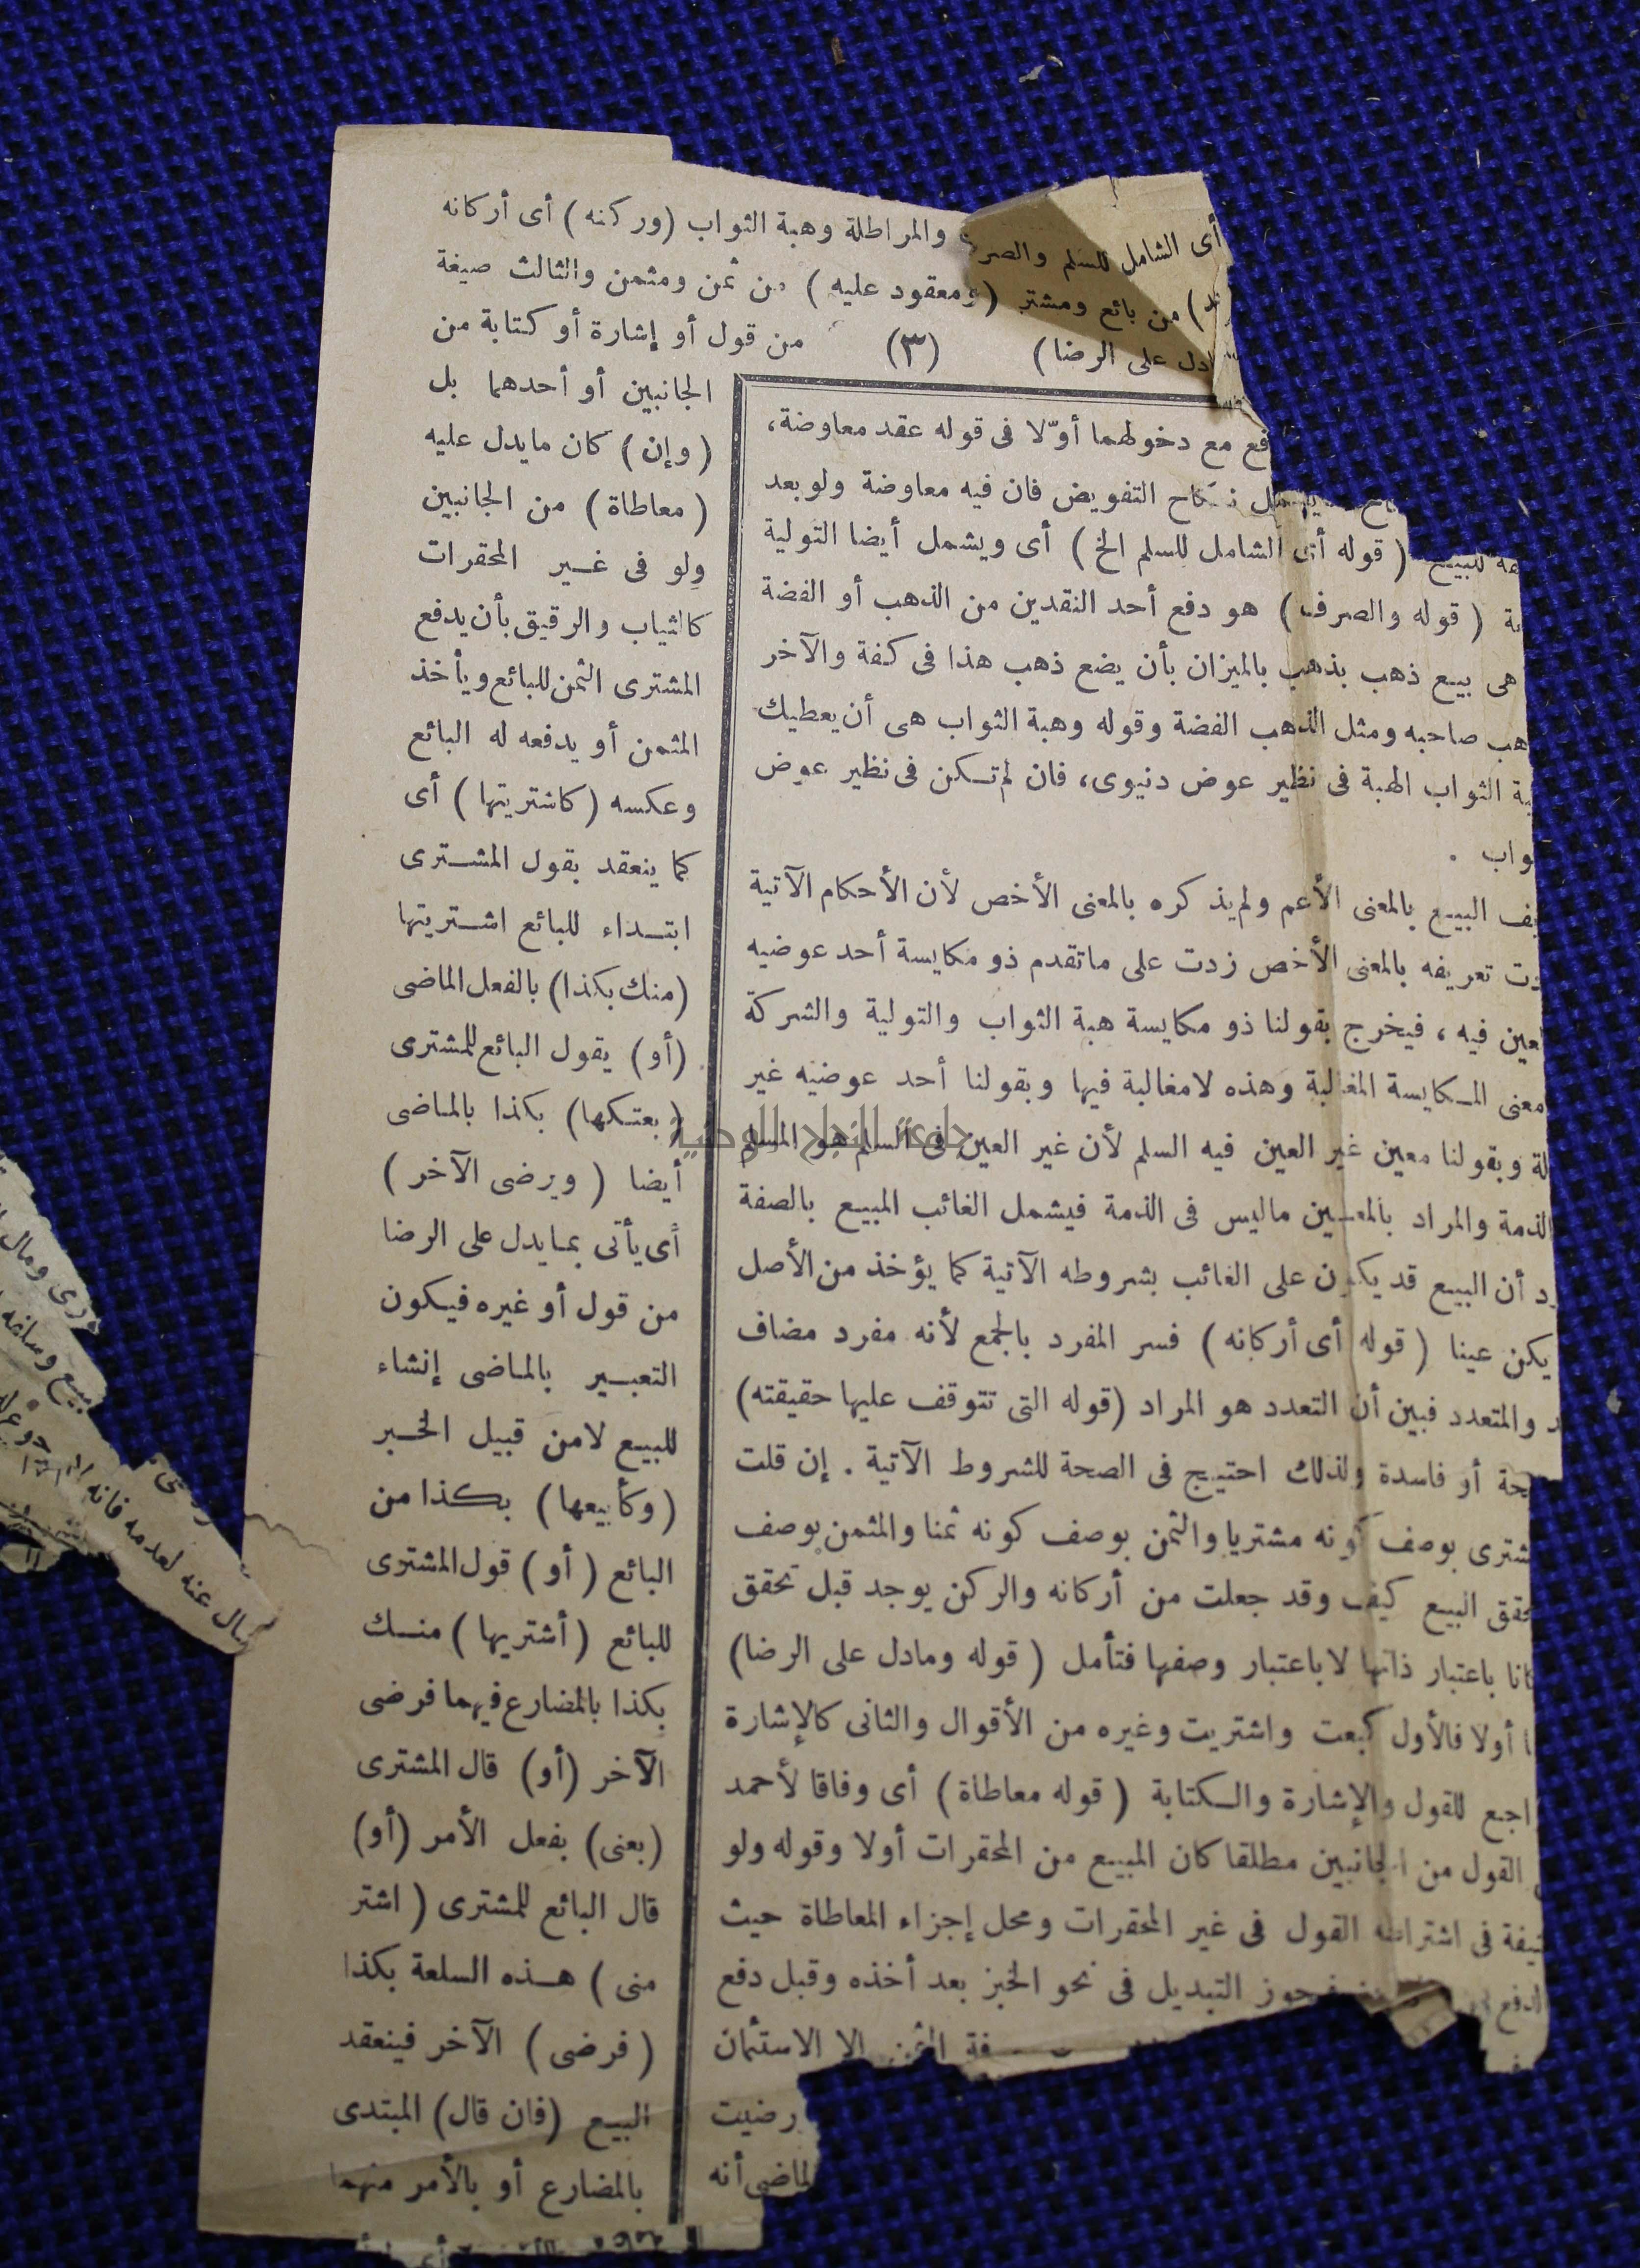 أى الشامل للسلم والصرف والمراطلة وهبة الثواب (وركنه) أى أركانه
من بائع ومشتر (ومعقود عليه) من ثمن ومثمن والثالث صيغة
على الرضا) (٣) من قول أو إشارة أو كتابة من
الجانبين أو أحدهما بل
(وإن) كان مايدل عليه
(معاطاة) من الجانبين
ولو فى غير المحقرات
كالثياب والرقيق بأن يدفع
المشترى الثمن للبائع ويأخذ
المثمن أو يدفعه له البائع
وعكسه (كاشتريتها) أى
كما ينعقد بقول المشترى
ابتداء للبائع اشتريتها
(منك بكذا) بالفعل الماضى
(أو) يقول البائع للمشترى
(بعتكها) بكذا بالماضى
أيضا (ويرضى الآخر)
أى يأتى بما يدل على الرضا
من قول أو غيره فيكون
التعبير بالماضى إنشاء
للبيع لامن قبيل الخبر
(وكأبيعها) بكذا من
البائع (أو) قول المشترى
للبائع (أشتريها) منك
بكذا بالمضارع فيهما فرضى
الآخر (أو) قال المشترى
(بعنى) بفعل الأمر (أو)
قال البائع للمشترى (اشتر
منى) هذه السلعة بكذا
(فرضى) الآخر فينعقد
البيع (فان قال) المبتدى
بالمضارع أو بالأمر منهما
مع دخولهما أوّلا فى قوله عقد معاوضة،
نكاح التفويض فان فيه معاوضة ولو بعد
(قوله أى الشامل للسلم الخ) أى ويشمل أيضا التولية
(قوله والصرف) هو دفع أحد النقدين من الذهب أو الفضة
هى بيع ذهب بذهب بالميزان بأن يضع ذهب هذا فى كفة والآخر
صاحبه ومثل الذهب الفضة وقوله وهبة الثواب هى أن يعطيك
الثواب الهبة فى نظير عوض دنيوى، فان لم تكن فى نظير عوض
البيع بالمعنى الأعم ولم يذكره بالمعنى الأخص لأن الأحكام الآتية
تعريفه بالمعنى الأخص زدت على ماتقدم ذو مكايسة أحد عوضيه
فيه، فيخرج بقولنا ذو مكايسة هبة الثواب والتولية والشركة
معنى المكايسة المغالبة وهذه لامغالبة فيها وبقولنا أحد عوضيه غير
وبقولنا معين غير العين فيه السلم لأن غير العين فى السلم هو المسلم
الذمة والمراد بالمعين ماليس فى الذمة فيشمل الغائب المبيع بالصفة
أن البيع قد يكون على الغائب بشروطه الآتية كما يؤخذ من الأصل
يكن عينا (قوله أى أركانه) فسر المفرد بالجمع لأنه مفرد مضاف
والمتعدد فبين أن التعدد هو المراد (قوله التى تتوقف عليها حقيقته)
أو فاسدة ولذلك احتيج فى الصحة للشروط الآتية. إن قلت
بوصف كونه مشتريا والثمن بوصف كونه ثمنا والمثمن بوصف
البيع كيف وقد جعلت من أركانه والركن يوجد قبل تحقق
باعتبار ذاتها لا باعتبار وصفها فتأمل (قوله ومادل على الرضا)
أولا فالأول كبعت واشتريت وغيره من الأقوال والثانى كالإشارة
للقول والإشارة والكتابة (قوله معاطاة) أى وفاقا لأحمد
القول من الجانبين مطلقا كان المبيع من المحقرات أولا وقوله ولو
فى اشتراطه القول فى غير المحقرات ومحل إجزاء المعاطاة حيث
التبديل فى نحو الخبز بعد أخذه وقبل دفع
الثمن إلا الاستئمان
رضيت
أنه
جامعة النجاح الوطنية